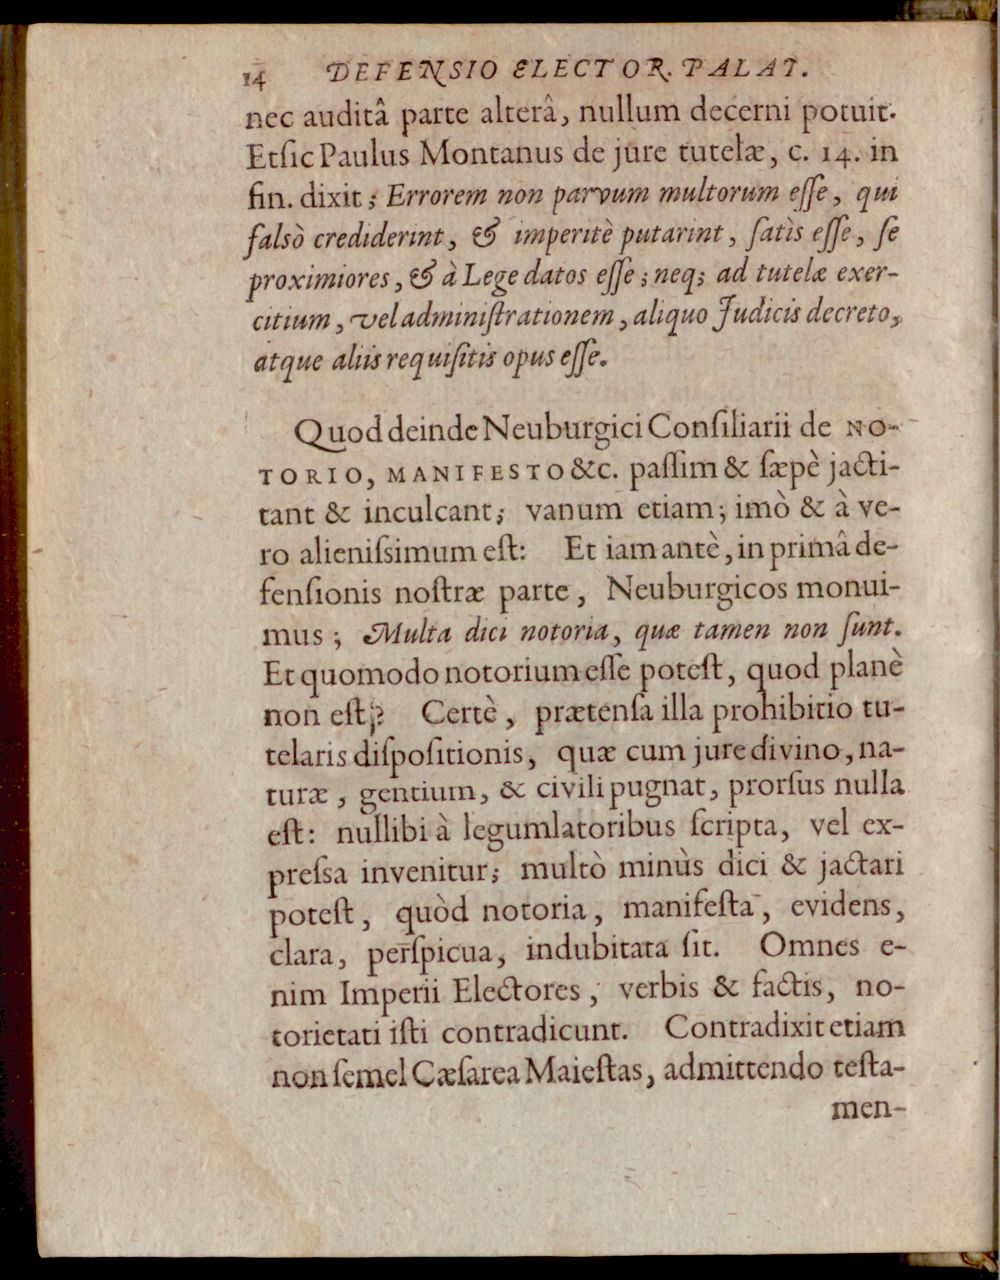 14 DEFENSIO ELECTOR. PALAT.
nec auditâ parte alterâ, nullum decerni potuit.
Etſic Paulus Montanus de jure tutelæ, c. 14. in
fin. dixit; Errorem non parvum multorum eſſe, qui
falsò crediderint, & imperitè putarint, ſatis eſſe, ſe
proximiores, & à Lege datos eſſe; neq; ad tutelæ exer-
citium, vel adminiſtrationem, aliquo Judicis decreto,
atque aliis requiſitis opus eſſe.
Quod deinde Neuburgici Conſiliarii de NO-
TORIO, MANIFESTO &c. paſſim & ſæpè jacti-
tant & inculcant; vanum etiam; imò & à ve-
ro alieniſsimum eſt: Et iam antè, in primâ de-
fenſionis noſtræ parte, Neuburgicos monui-
mus; Multa dici notoria, quæ tamen non ſunt.
Et quomodo notorium eſſe poteſt, quod planè
non eſt? Certè, prætenſa illa prohibitio tu-
telaris diſpoſitionis, quæ cum jure divino, na-
turæ, gentium, & civili pugnat, prorſus nulla
eſt: nullibi à legumlatoribus ſcripta, vel ex-
preſsa invenitur; multò minùs dici & jactari
poteſt, quòd notoria, manifeſta, evidens,
clara, perſpicua, indubitata ſit. Omnes e-
nim Imperii Electores, verbis & factis, no-
torietati iſti contradicunt. Contradixit etiam
non ſemel Cæſarea Maieſtas, admittendo teſta-
men-